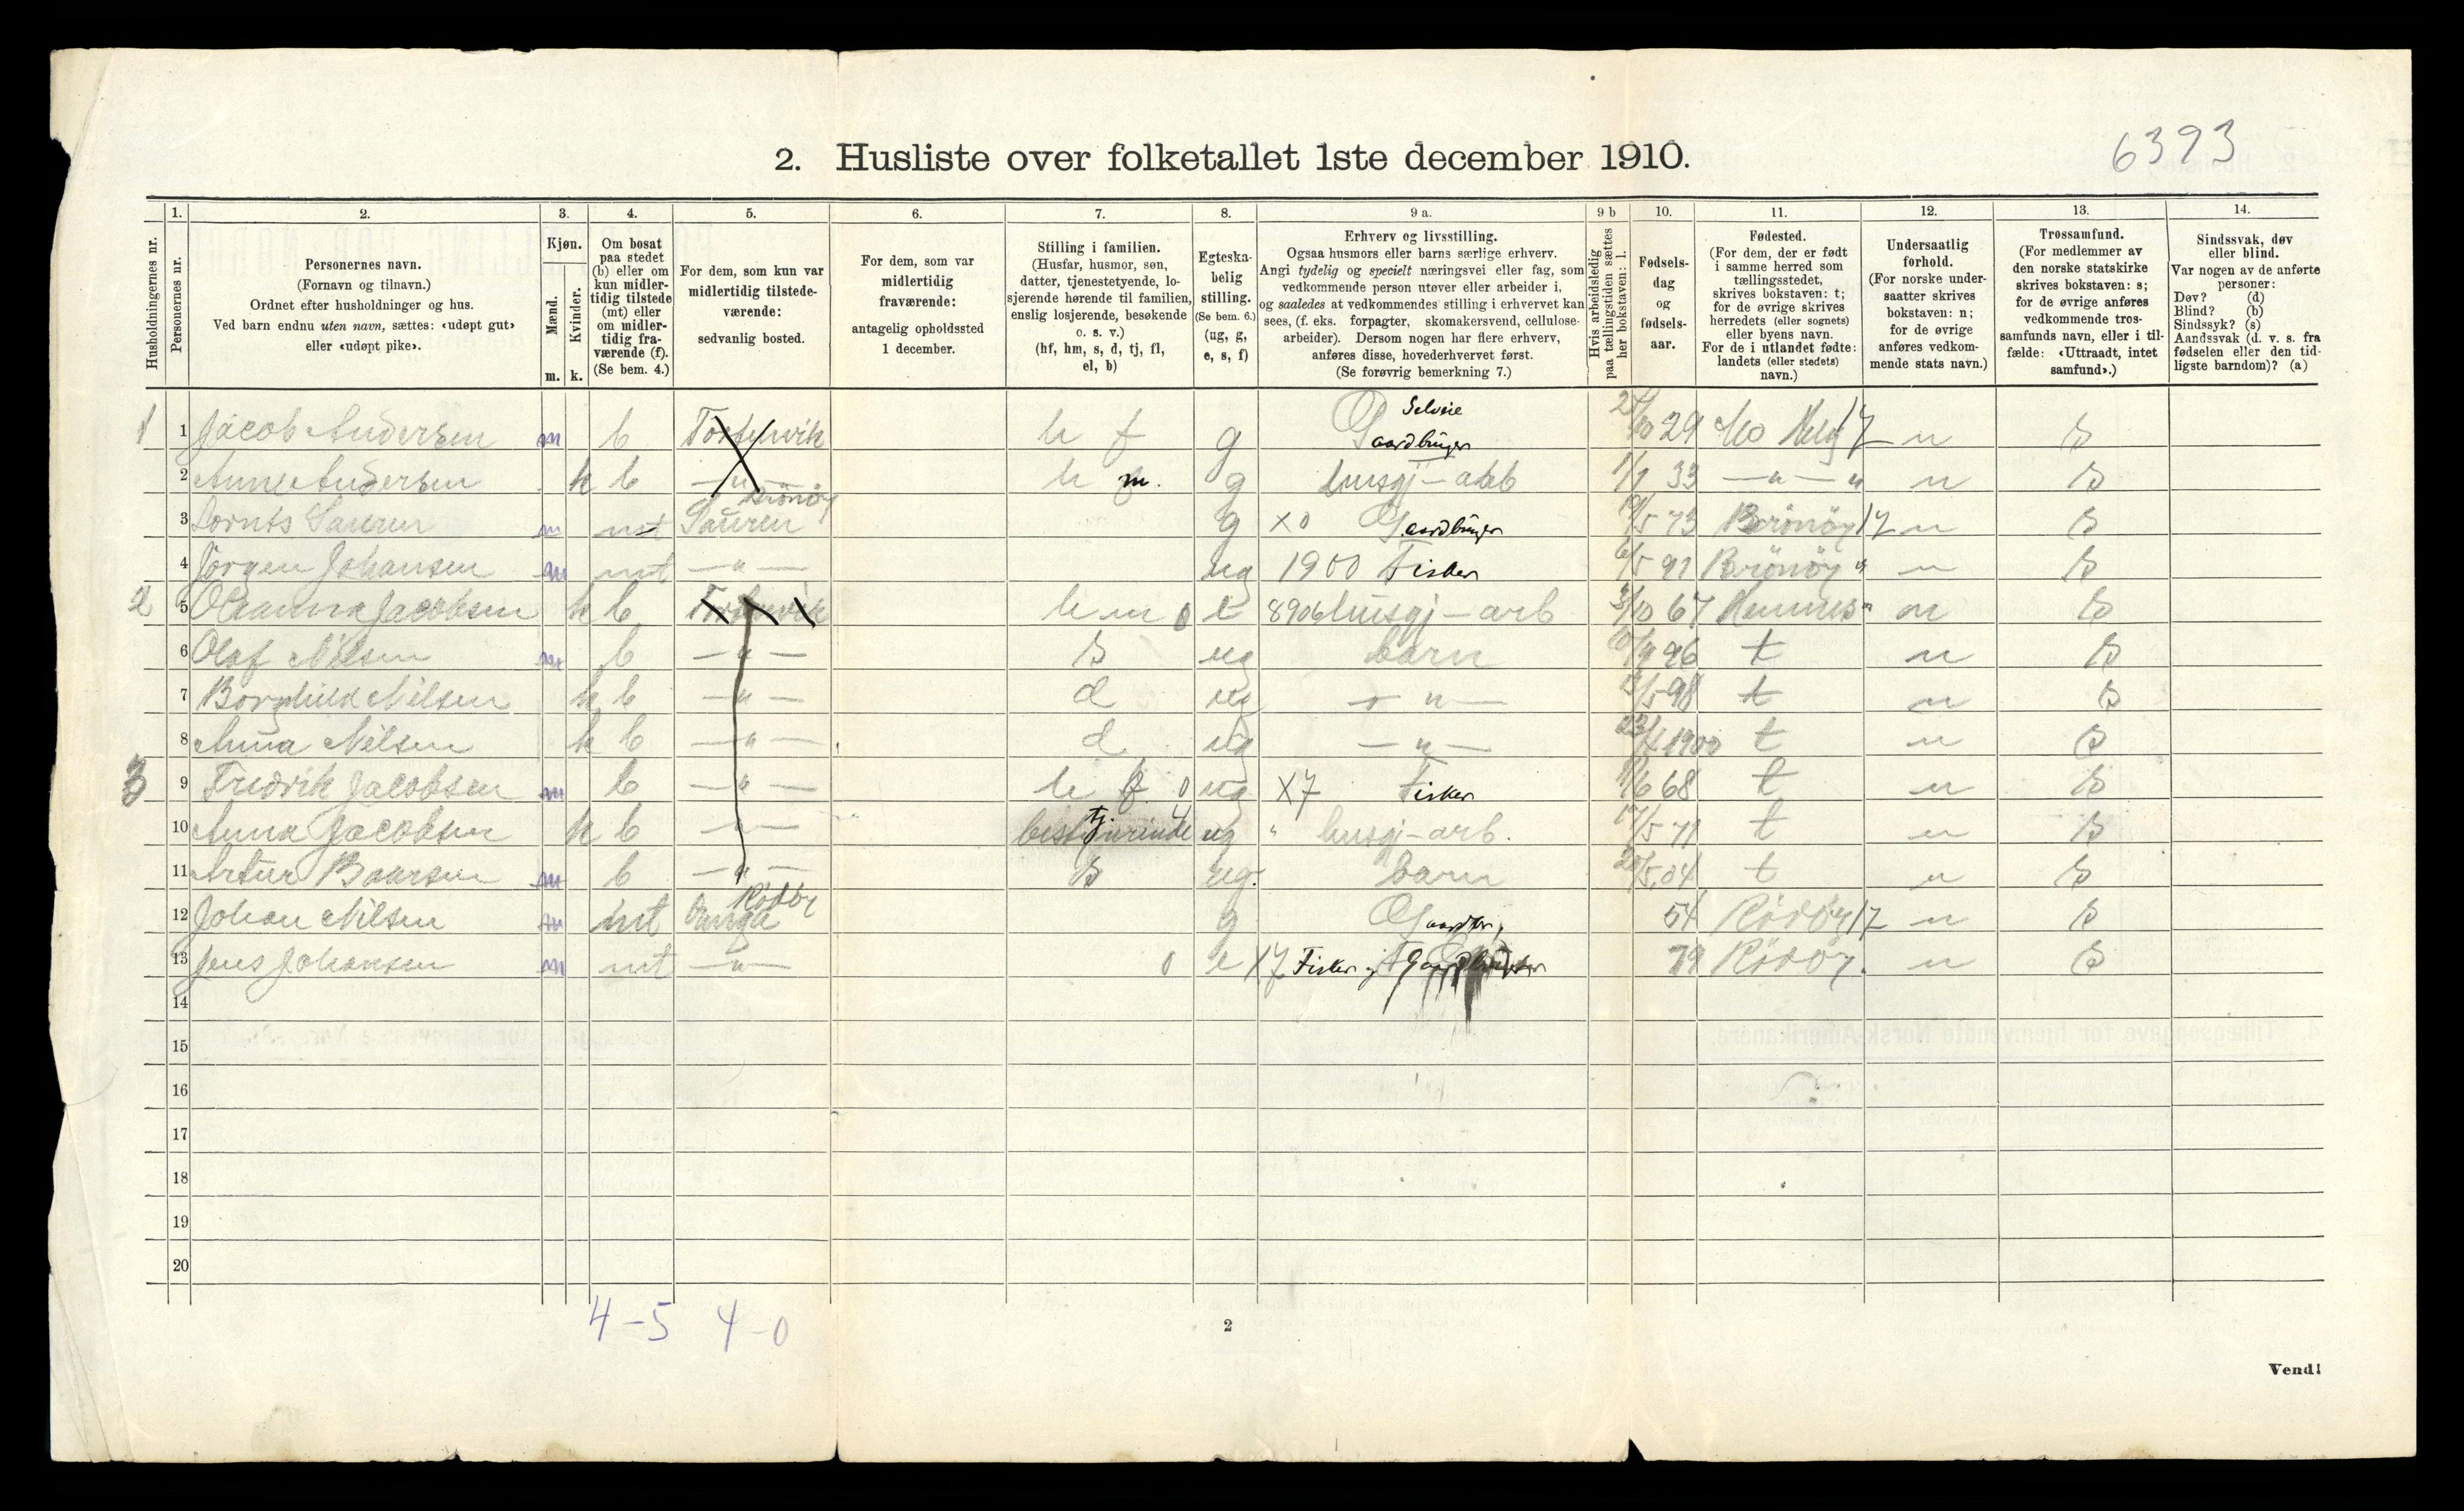 6393
2. Husliste over folketallet 1ste december 1910.
Husholdningernes nr.
1.
Personernes nr.
2.
Personernes navn.
(Fornavn og tilnavn.)
Ordnet efter husholdninger og hus.
Ved barn endnu uten navn, sættes: «udøpt gut»
eller «udøpt pike».
3.
Kjøn.
Mænd.
Kvinder.
m. k.
4.
Om bosat
paa stedet
(b) eller om
kun midler-
tidig tilstede
(mt) eller
om midler-
tidig fra-
værende (f).
(Se bem. 4.)
5.
For dem, som kun var
midlertidig tilstede-
værende:
sedvanlig bosted.
6.
For dem, som var
midlertidig
fraværende:
antagelig opholdssted
1 december.
7.
Stilling i familien.
(Husfar, husmor, søn,
datter, tjenestetyende, lo-
sjerende hørende til familien,
enslig losjerende, besøkende
o. s. v.)
(hf, hm, s, d, tj, fl,
el, b)
8.
Egteska-
belig
stilling.
(Se bem. 6.)
(ug, g,
e, s, f)
9 a.
Erhverv og livsstilling.
Ogsaa husmors eller barns særlige erhverv.
Angi tydelig og specielt næringsvei eller fag, som
vedkommende person utøver eller arbeider i,
og saaledes at vedkommendes stilling i erhvervet kan
sees, (f. eks. forpagter, skomakersvend, cellulose-
arbeider). Dersom nogen har flere erhverv,
anføres disse, hovederhvervet først.
(Se forøvrig bemerkning 7.)
9 b
Hvis arbeidsledig
paa tællingstiden sættes
her bokstaven: l.
10.
Fødsels-
dag
og
fødsels-
aar.
11.
Fødested.
(For dem, der er født
i samme herred som
tællingsstedet,
skrives bokstaven: t;
for de øvrige skrives
herredets (eller sognets)
eller byens navn.
For de i utlandet fødte:
landets (eller stedets)
navn.)
12.
Undersaatlig
forhold.
(For norske under-
saatter skrives
bokstaven: n;
for de øvrige
anføres vedkom-
mende stats navn.)
13.
Trossamfund.
(For medlemmer av
den norske statskirke
skrives bokstaven: s;
for de øvrige anføres
vedkommende tros-
samfunds navn, eller i til-
fælde: «Uttraadt, intet
samfund».)
14.
Sindssvak, døv
eller blind.
Var nogen av de anførte
personer:
Døv? (d)
Blind? (b)
Sindssyk? (s)
Aandssvak (d. v. s. fra
fødselen eller den tid-
ligste barndom)? (a)
1 1 Jacob Andersen m b h f g Selveie Gaardbruger 29 Mo n s
2 Anne Andersen k b —"— h m. g husgj-arb 1/1 33 —"— n s
3 Sauren m mt Sauren Brönöy g X0 Gaardbruger 19/5 73 Brönöy n s
4 Jörgen Johansen m mt —"— ug 1900 Fisker 6/5 91 Brönöy n s
2 5 Jacobsen k b h m 0 e 8906 husgj-arb 3/10 67 n s
6 Olaf Nilsen m b —"— s ug barn 96 t n s
7 Borghild Nilsen k b —"— d ug —"— 98 t n s
8 Anna Nilsen k b —"— d ug —"— 1900 t n s
3 9 Fredrik Jacobsen m b —"— h f 0 ug X7 Fisker 68 t n s
10 Anna Jacobsen k b —"— bestyrerinde tj. 4 ug " husgj-arb. 17/5 71 t n s
11 Artur Baarsen m b —"— s ug. barn 04 t n s
12 Johan Nilsen m mt Rödöy g Gaardbr, 54 Rödöy n s
13 Jens Johansen m mt —"— 0 e X7 Fisker 79 Rödöy. n s
14
15
16
17
18
19
20
4-5 4-0
2
Vend!